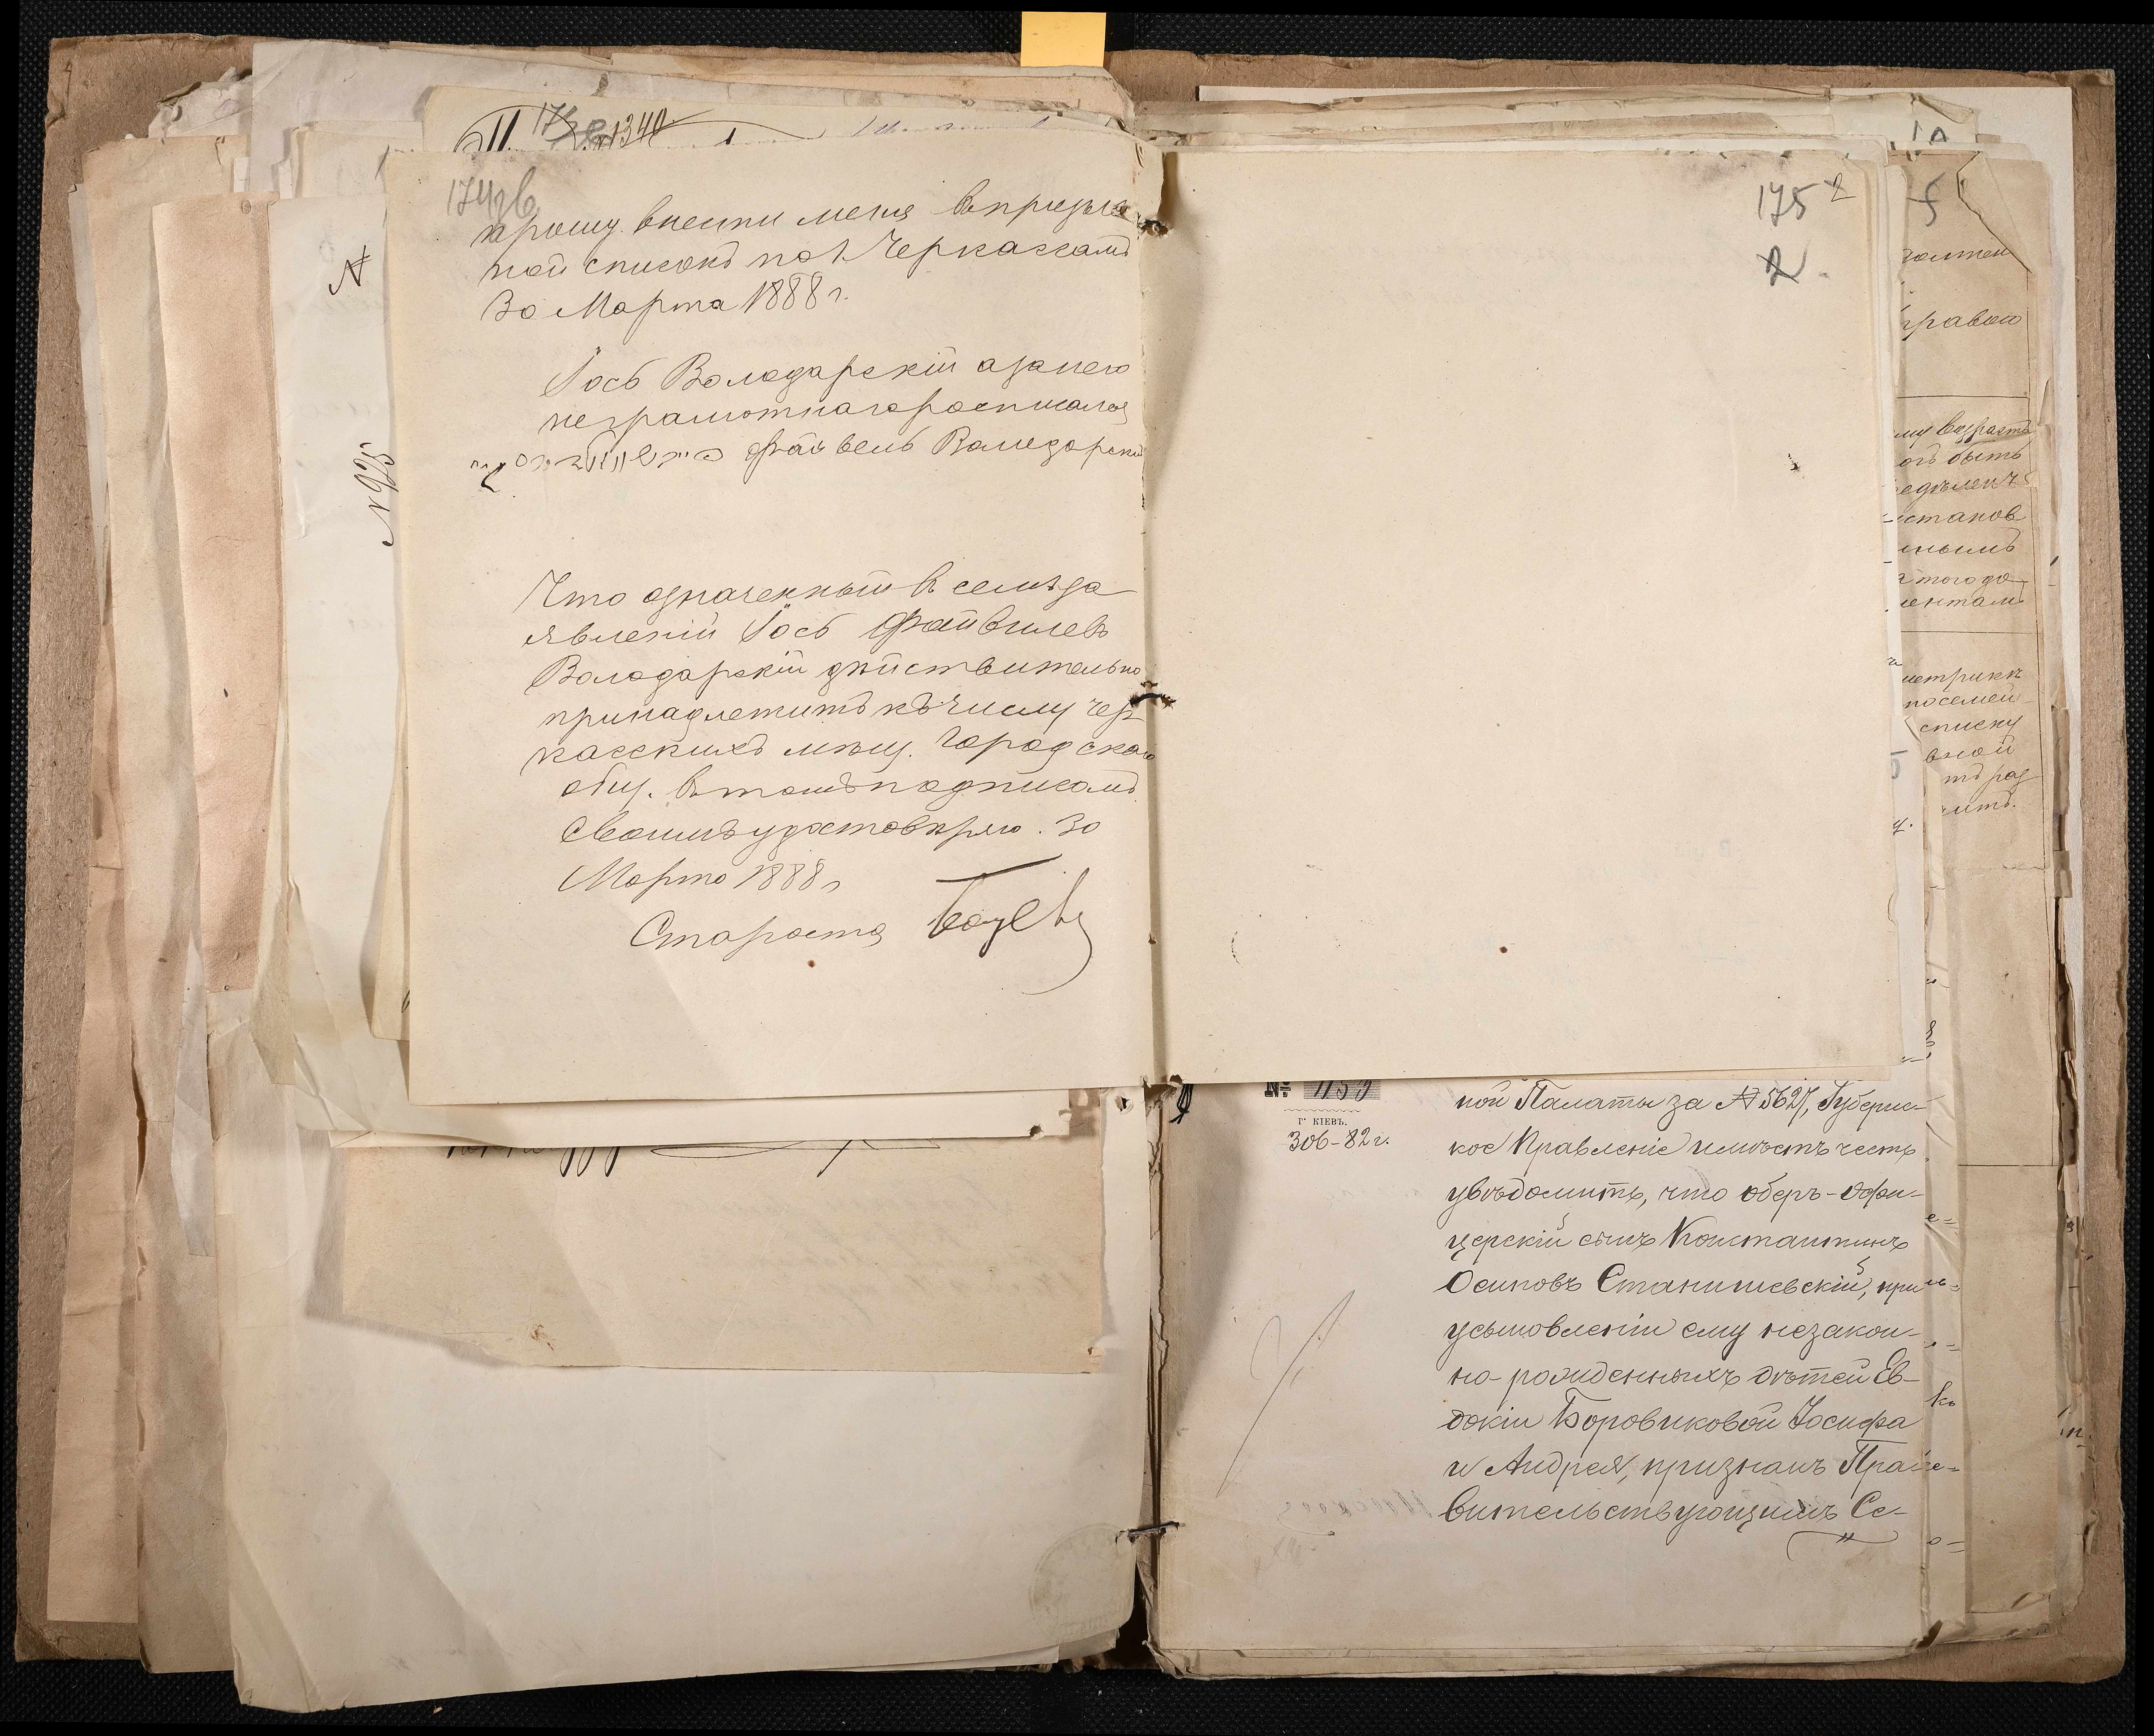 1340
174 об
прошу внести меня въ призыв
ной списокъ по г. Черкассамъ
30 Марта 1888 г.
Іось Володарскій а за него
неграмотнаго росписался
Файвель Володарскій
Что означенный въ семъ за
явленій Іось Файвилевъ
Володарскій дѣйствительно
принадлежитъ къ числу чер
касскихъ мѣщ. городского
общ. въ томъ подписомъ
своимъ удостовѣряю. 30
Марта 1888 г
Староста
N
N 925
175
2
2
5
правою
возраста
быть
станов
ннымъ
того до
ментамъ
метрикѣ
посемей
списку
раз
№ 1159
Г. КІЕВЪ.
82 г.
ной Палаты за № 5627, Губернс-
кое Правленіе имѣетъ честь
увѣдомить, что оберъ-офи-
церскій сынъ Константинъ
Осиповъ Станишевскій, при
усыновленіи ему незакон-
но-рожденныхъ дѣтей Ев-
докіи Боровиковой Іосифа
и Андрея, признанъ Пра-
вительствующимъ Се-